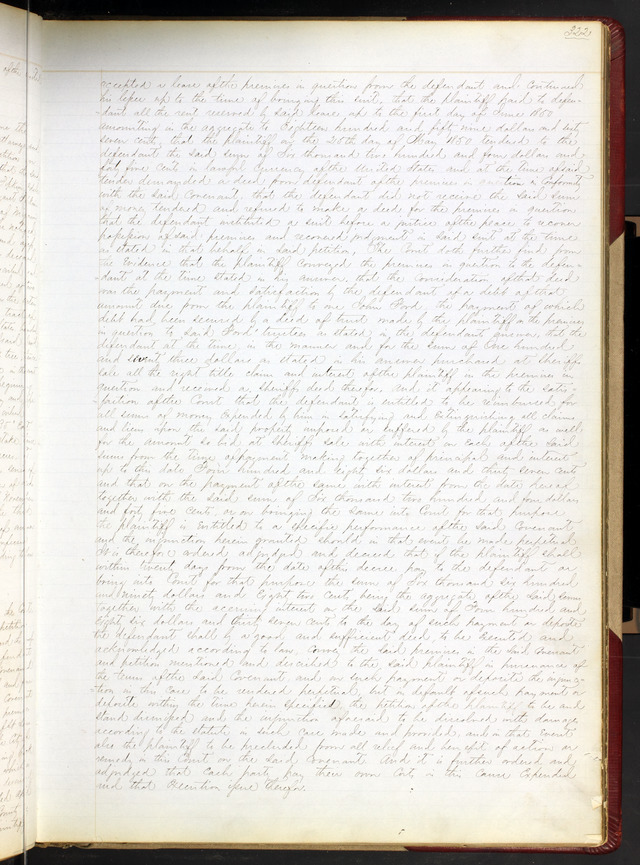 222
accepted a lease of the premises in question from the defendant and continued
his lessee up to the time of bringing this suit, that the plaintiff paid to defen-
dant all the rent reserved by said lease up to the first day of June 1850
amounting in the aggregate to Eighteen hundred and fifty nine dollars and sixty
seven cents, that the plaintiff on the 28th day of May 1850 tendered to the
defendant the said sum of Six thousand two hundred and four dollars and
forty five cents in lawful currency of the United States and at the time of said
tender demanded a deed from defendant of the premises in question in conformity
with the said Covenant, that the defendant did not receive the said sum
of money tendered and refused to make a deed for the premises in question
that the defendant instituted a suit before a justice of the peace to recover
possession of said premises and recovered judgment in said suit at the time
stated in that behalf in said petition, The Court doth further find from
the Evidence that the plaintiff conveyed the premises in question to the defen-
dant at the time stated in his answer, that the consideration of that deed
was the payment and satisfaction by the defendant of a debt of that
amount due from the plaintiff to one John Ford, the payment of which
debt had been secured by a deed of trust made by the plaintiff on the premises
in question to said Ford's trustees as stated in the defendants answer, that the
defendant at the time in the manner and for the sum of One hundred
and seventy three dollars as stated in his answer purchased at Sheriffs
sale all the right title claim and interest of the plaintiff in the premises in
question and received a Sheriffs deed therefor and it appearing to the satis-
faction of the Court that the defendant is entitled to be reimbursed for
all sums of money Expended by him in satisfying and Extinguishing all Claims
and liens upon the said property imposed or suffered by the plaintiff as well
for the amount so bid at Sheriffs Sale with interest on Each of the said
sums from the time of payment making together of principal and interest
up to this date Four hundred and Eighty six dollars and thirty seven cents
and that on the payment of the same with interest from the date hereof
together with the said sum of Six thousand two hundred and four dollars
and forty five cents or on bringing the same into Court for that purpose
the plaintiff is Entitled to a specific performance of the said Covenant
and the injunction herein granted should in that event be made perpetual
It is therefore ordered adjudged and decreed that if the plaintiff shall
within twenty days from the date of this decree pay to the defendant or
bring into Court for that purpose the sum of Six thousand six hundred
and ninety dollars and Eighty two Cents, being the aggregate of the said sums
together with the accruing interest on the said sum of Four hundred and
Eighty six dollars and thirty seven cents to the day of such payment or deposit
the defendant shall by a good and sufficient deed, to be Executed and
acknowledged according to law, Convey the said premises in the said Covenant
and petition mentioned and described to the said plaintiff in pursuance of
the terms of the said Covenant, and on such payment or deposit the injunc-
tion in this case to be rendered perpetual, but in default of such payment or
deposite within the time herein specified, the petition of the plaintiff to be and
stand dismissed and the injunction aforesaid to be dissolved with damages
according to the statute in such case made and provided, and in that Event
also the plaintiff to be precluded from all relief and benefit of action or
remedy in this Court on the said Covenant And it is further ordered and
adjudged that Each party pay their own Costs in this cause Expended
and that Execution issue therefor